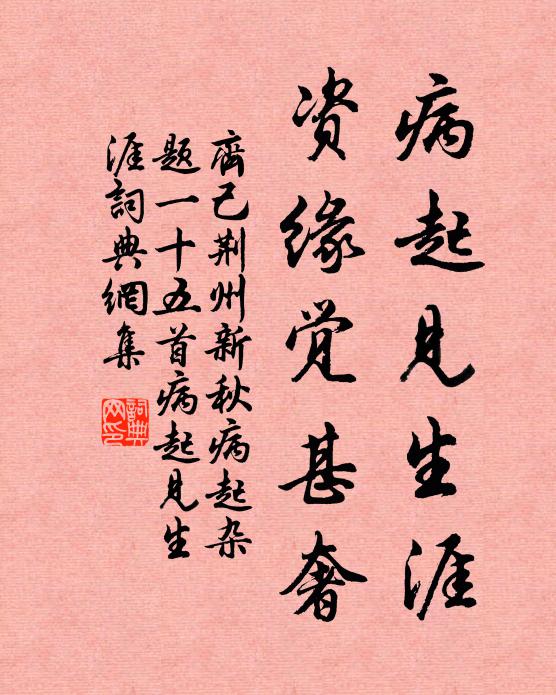 病起見生涯
资缘觉甚奢
齊己荆州新秋病起杂
题一十五首病起見生
涯詞典網集
詞典
网印